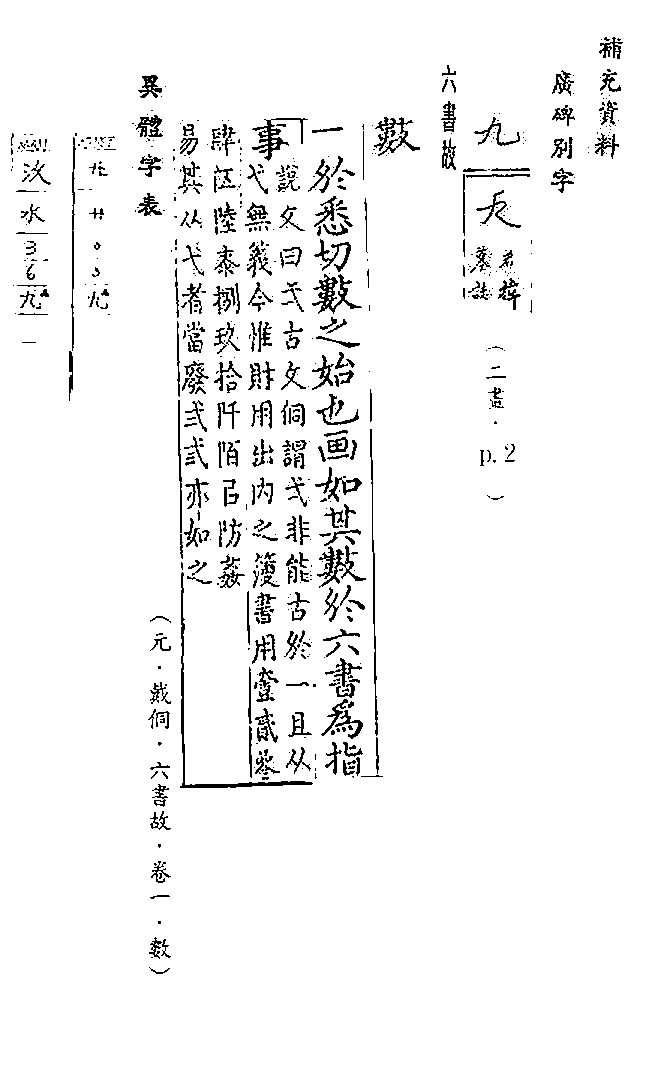 補充資料
廣碑別字
九
墓誌
(二畫.p.2)
六書故
數
一於悉切數之始也画如其數於六書爲指
事
說文曰弌古文侗謂弌非能古於一且从
弋無義今惟財用出內之簿書用壹貳叄
肆㐅陸桼捌玖拾阡陌㠯防姦
易其从弋者當廢弍弎亦如之
異體字表
(元.戴侗.六書故.卷一.數)
九
汷
水
3
6
九
一